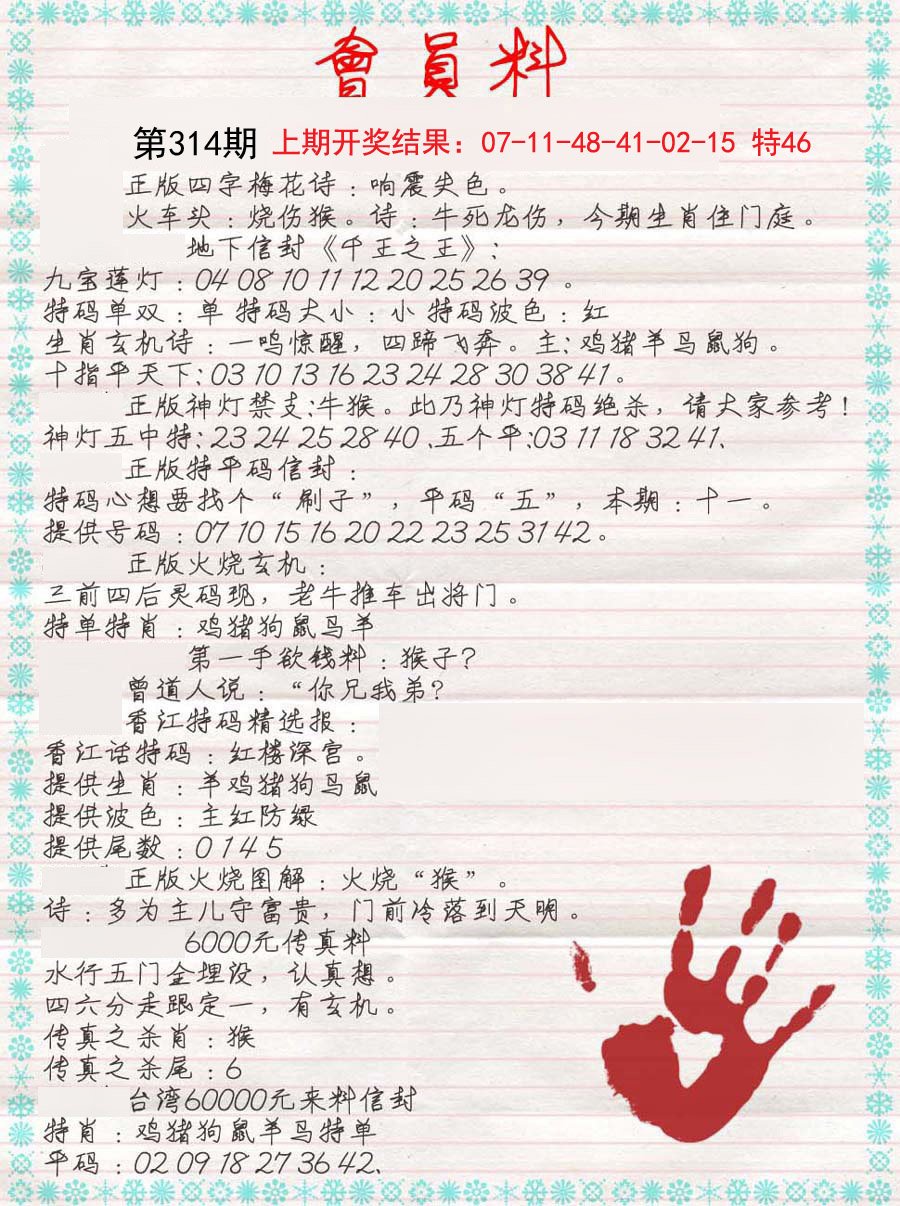 會員料
第314期 上期开奖结果：07-11-48-41-02-15 特46
正版四字梅花诗：响震失色。
火车头：烧伤猴。诗：牛死龙伤，今期生肖住门庭。
地下信封《千王之王》：
九宝莲灯：04 08 10 11 12 20 25 26 39 。
特码单双：单 特码大小：小 特码波色：红
生肖玄机诗：一鸣惊醒，四蹄飞奔。主：鸡猪羊马鼠狗。
十指平天下：03 10 13 16 23 24 28 30 38 41。
正版神灯禁支：牛猴。此乃神灯特码绝杀，请大家参考！
神灯五中特：23 24 25 28 40 、五个平：03 11 18 32 41、
正版特平码信封：
特码心想要找个“刷子”，平码“五”，本期：十一。
提供号码：07 10 15 16 20 22 23 25 31 42 。
正版火烧玄机：
三前四后灵码现，老牛推车出将门。
特单特肖：鸡猪狗鼠马羊
第一手欲钱料：猴子？
曾道人说：“你兄我弟？
香江特码精选报：
香江话特码：红楼深宫。
提供生肖：羊鸡猪狗马鼠
提供波色：主红防绿
提供尾数：0 1 4 5
正版火烧图解：火烧“猴”。
诗：多为主儿守富贵，门前冷落到天明。
6000元传真料
水行五门金埋没，认真想。
四六分走跟定一，有玄机。
传真之杀肖：猴
传真之杀尾：6
台湾60000元来料信封
特肖：鸡猪狗鼠羊马特单
平码：02 09 18 27 36 42、